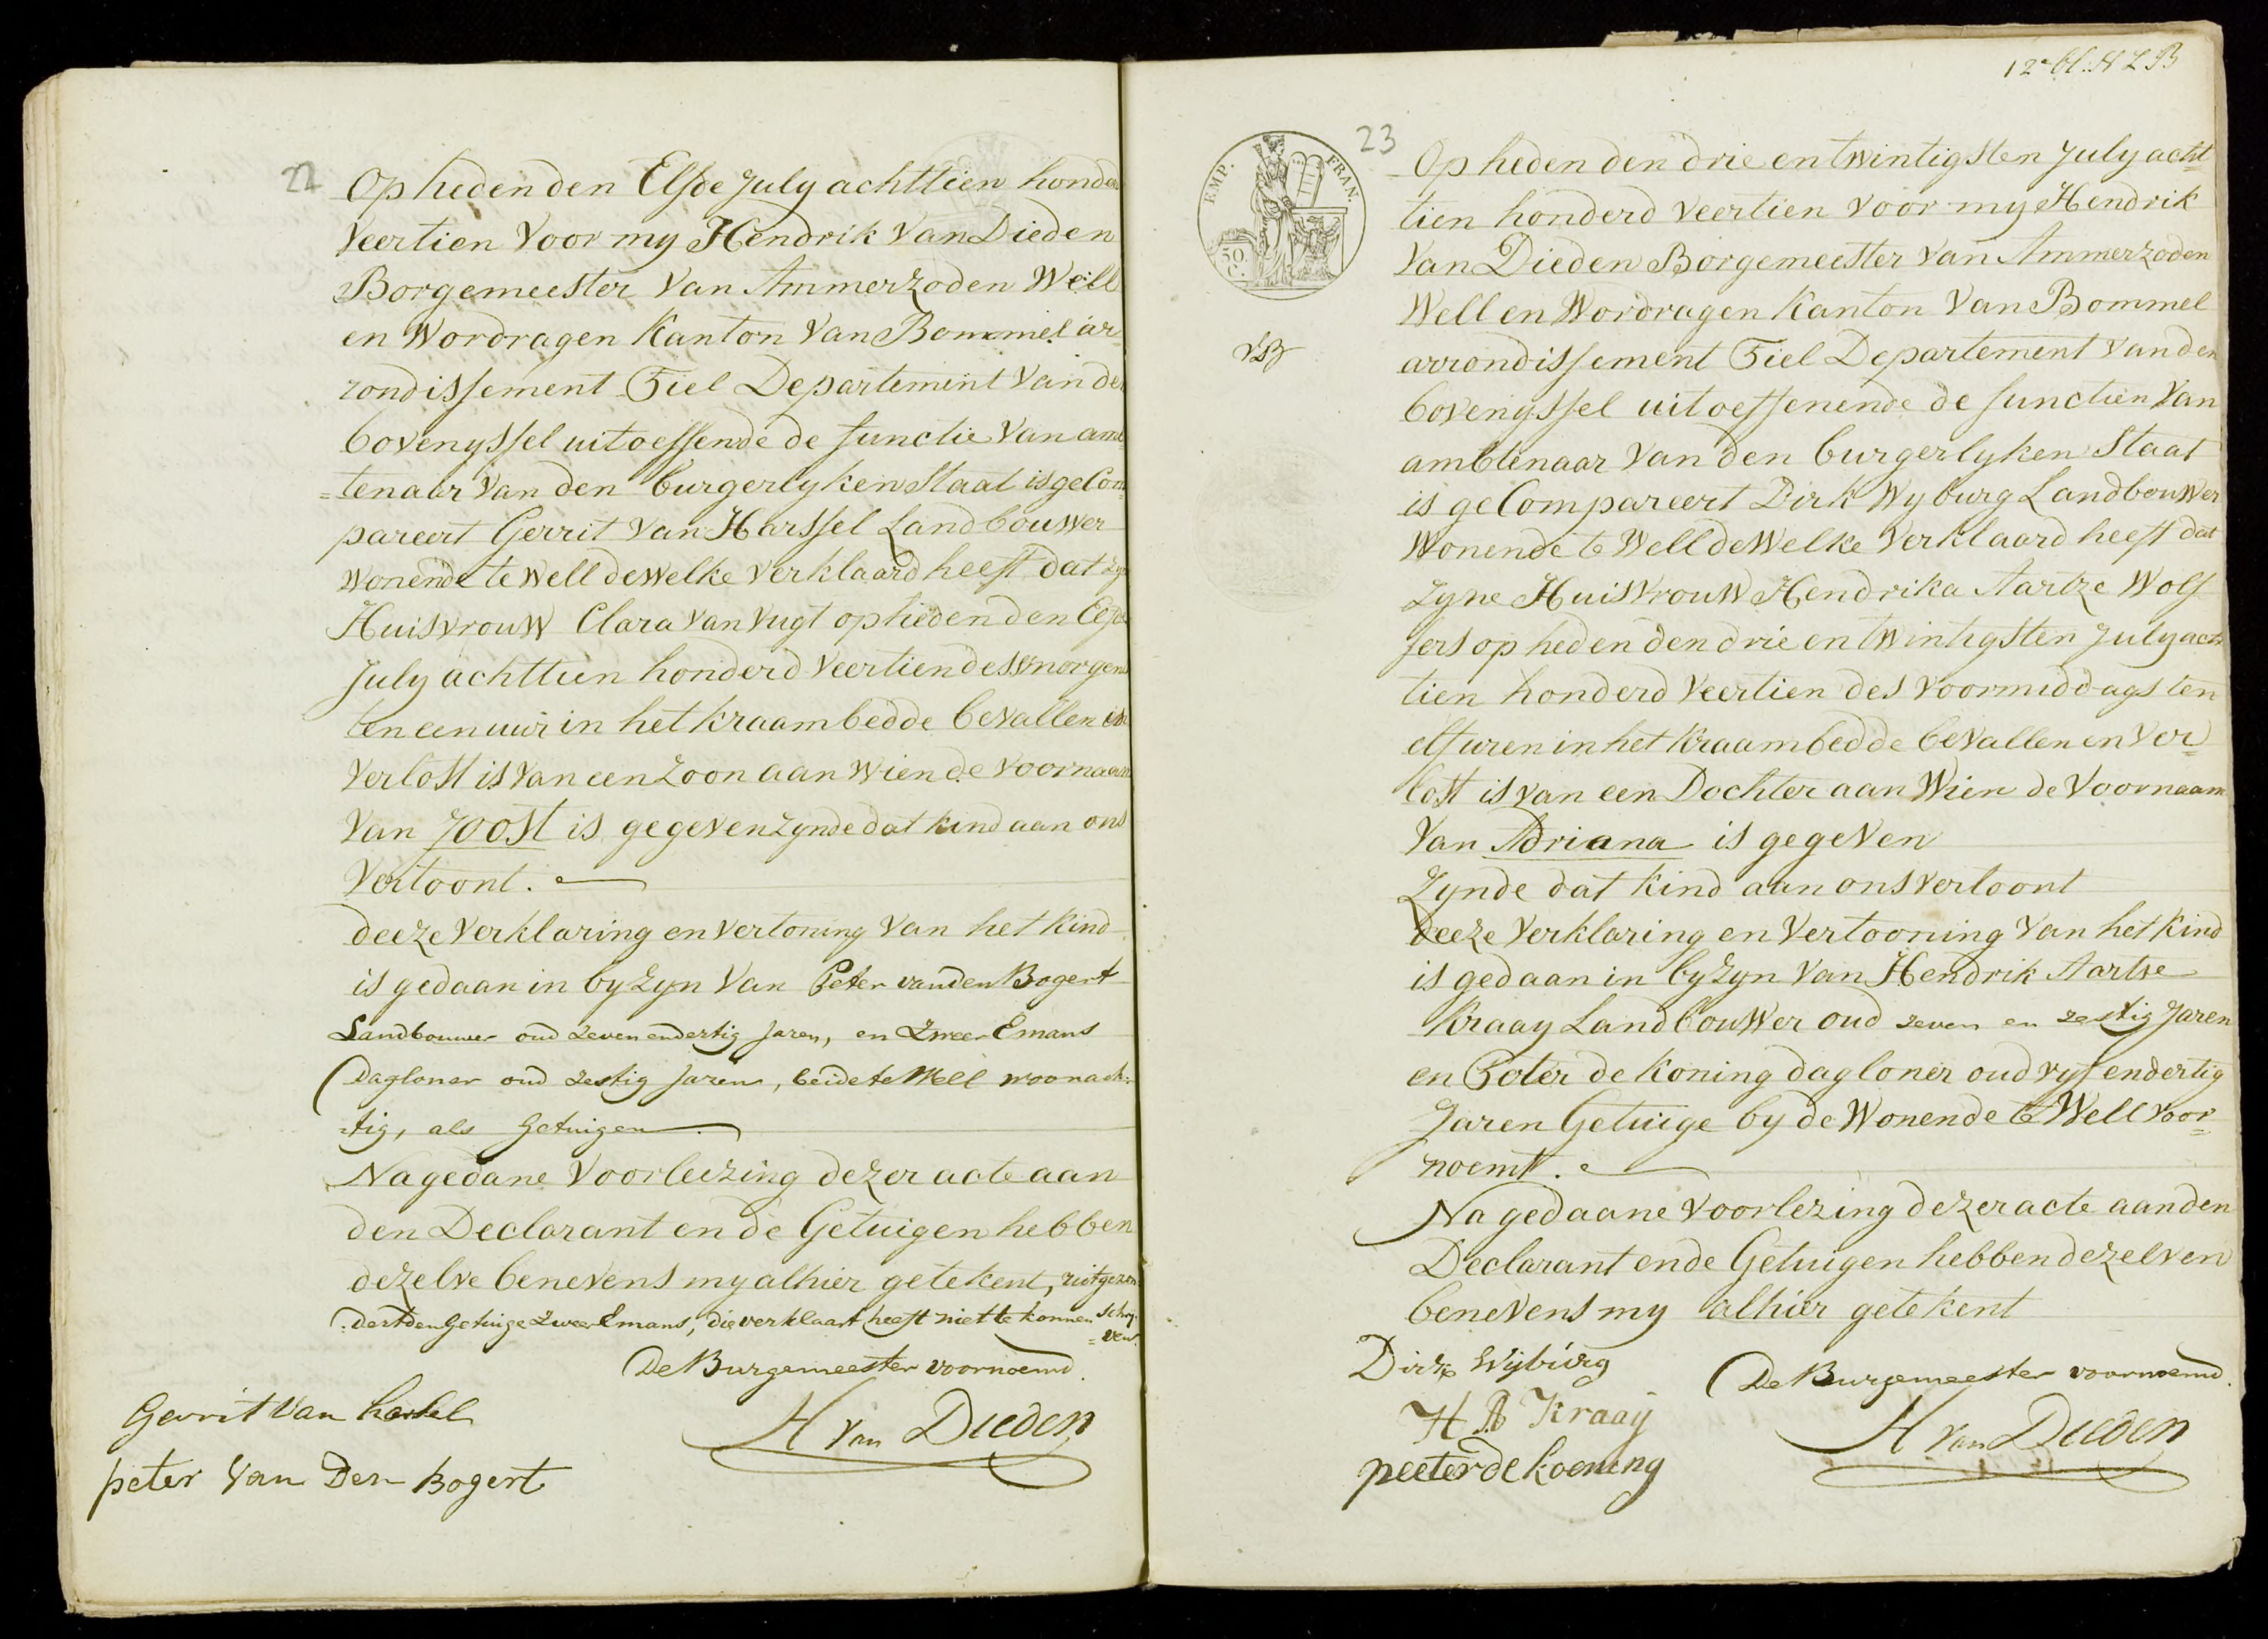 22
Op heden den Elfde July achttien honde
Veertien Voor my Hendrik Van Dieden
Borgemeester Van Ammerzoden Well
en Wordragen Kanton Van Bommel ar
rondissement Tiel Departement Van de
bovenyssel uitoeffende de functie Van am
=tenaar Van den burgerlyken Staat is geCom
pareert Gerrit Van Harssel Landbouwer
Wonende te Well deWelke Verklaard heeft dat zyn
Huisvrouw Clara Van Vugt op heden den Elfde
July achttien honderd Veertien des smorgens
ten een uur in het kraambedde bevallen en
Verlost is Van een Zoon aan Wien de Voornaam
Van Joost is gegeven zynde dat kind aan ons
Vertoont.
deeze Verklaring en Vertoning Van het Kind
is gedaan in by zyn Van Peter van den Bogert
Landbouwer oud zeven en dertig Jaren, en Zweer Emans
Dagloner oud zestig Jaren, beide te Well woonach=
=tig, als Getuigen.
Na gedane Voorleezing dezer acte aan
den Declarant en de Getuigen hebben
dezelve benevens my alhier getekent, uitgezon
=dert den Getuige Zweer Emans, die verklaart heeft niet te konnen Schry
=ven.
De Burgemeester voornoemd.
Gerrit Van harsel
H Van Dieden
peter Van Den Bogert
12e bl. H Z B
EMP. FRAN.
50. C.
23
Op heden den drie en twintigsten July acht=
tien honderd Veertien Voor my Hendrik
Van Dieden Borgemeester Van Ammerzoden
Well en Wordragen Kanton Van Bommel
arrondissement Tiel Departement Van den
bovenyssel uitoeffenende de functien Van
ambtenaar Van den burgerlyken Staat
is geCompareert Dirk Wyburg Landbouwer
Wonende te Well deWelke Verklaard heeft dat
Zyne Huisvrouw Hendrika Aartze Wolf
fers op heden den drie en twintigsten July acht
tien honderd Veertien des Voormiddags ten
elf uren in het Kraambedde bevallen en Ver=
lost is van een Dochter aan Wien de Voornaam
Van Adriana is gegeven
Zynde dat Kind aan ons vertoont
Deeze Verklaring en Vertooning Van het Kind
is gedaan in by zyn Van Hendrik Aartse
Kraay Landbouwer oud zeven en zestig Jaren
en Peter de Koning dagloner oud vyf en dertig
Jaren Getuige by de Wonende te Well Voor=
noemt.
Na gedaane Voorlezing dezer acte aan den
Declarant en de Getuigen hebben dezelven
benevens my alhier getekent
Dirk Wijburg
De Burgemeester voornoemd.
H A Kraaij
H Van Dieden
peeter de koening